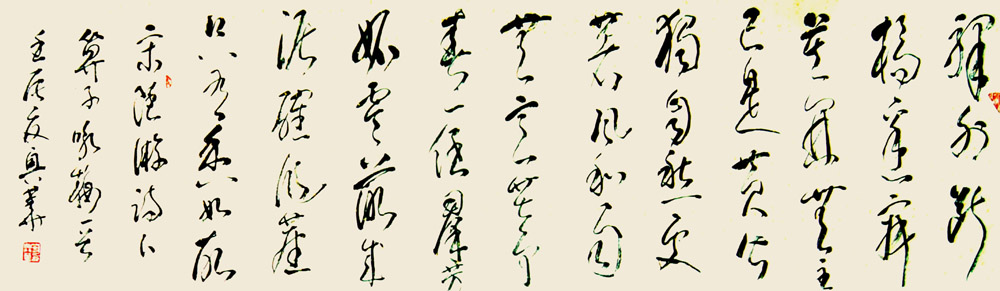 驛外断
橋邊寂
寞開無主
已是黄昏
獨自愁更
著风和雨
無意苦争
春一任群芳
妒零落成
泥碾作塵
只有香如故
宋陸游詩卜
算子咏梅一首
壬辰夏興華